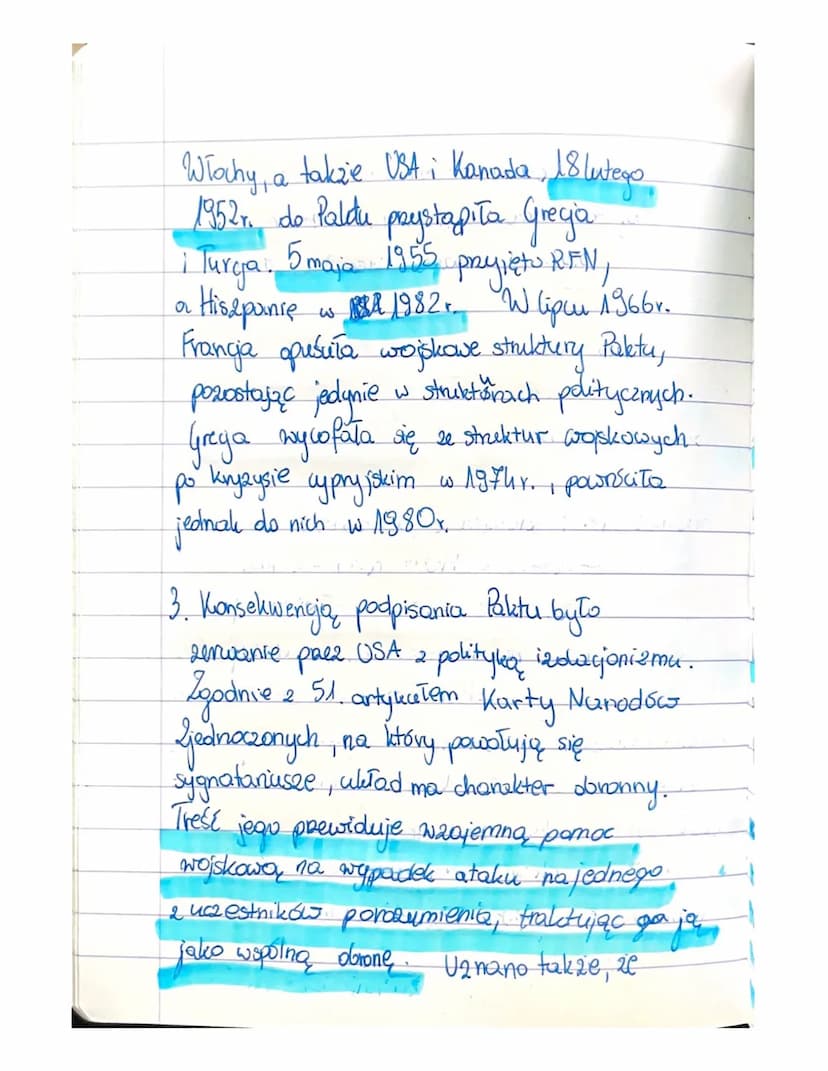 Włochy, a także USA i Kanada, 18 lutego
1952r. do Paktu przystąpiła Grecja
i Turcja. 5 maja 1955 przyjęto RFN,
a Hiszpanię w 1982r. W lipcu 1966r.
Francja opuściła wojskowe struktury Paktu,
pozostając jedynie w strukturach politycznych.
Grecja wycofała się ze struktur wojskowych
po kryzysie cypryjskim w 1974r., powróciła
jednak do nich w 1980r.
3. Konsekwencją podpisania Paktu było
zerwanie przez USA z polityką izolacjonizmu.
Zgodnie z 51. artykułem Karty Narodów
Zjednoczonych, na który powołują się
sygnatariusze, układ ma charakter obronny.
Treść jego przewiduje wzajemną pomoc
wojskową na wypadek ataku na jednego
z uczestników porozumienia, traktując ją
jako wspólną obronę. Uznano także, że